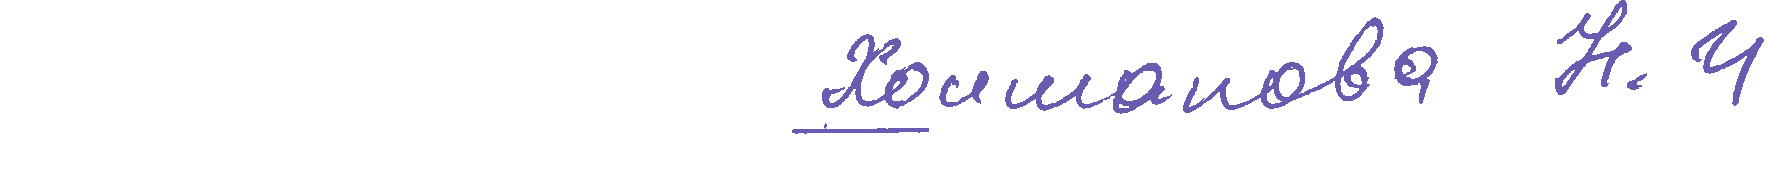 Холматова Н. Ч